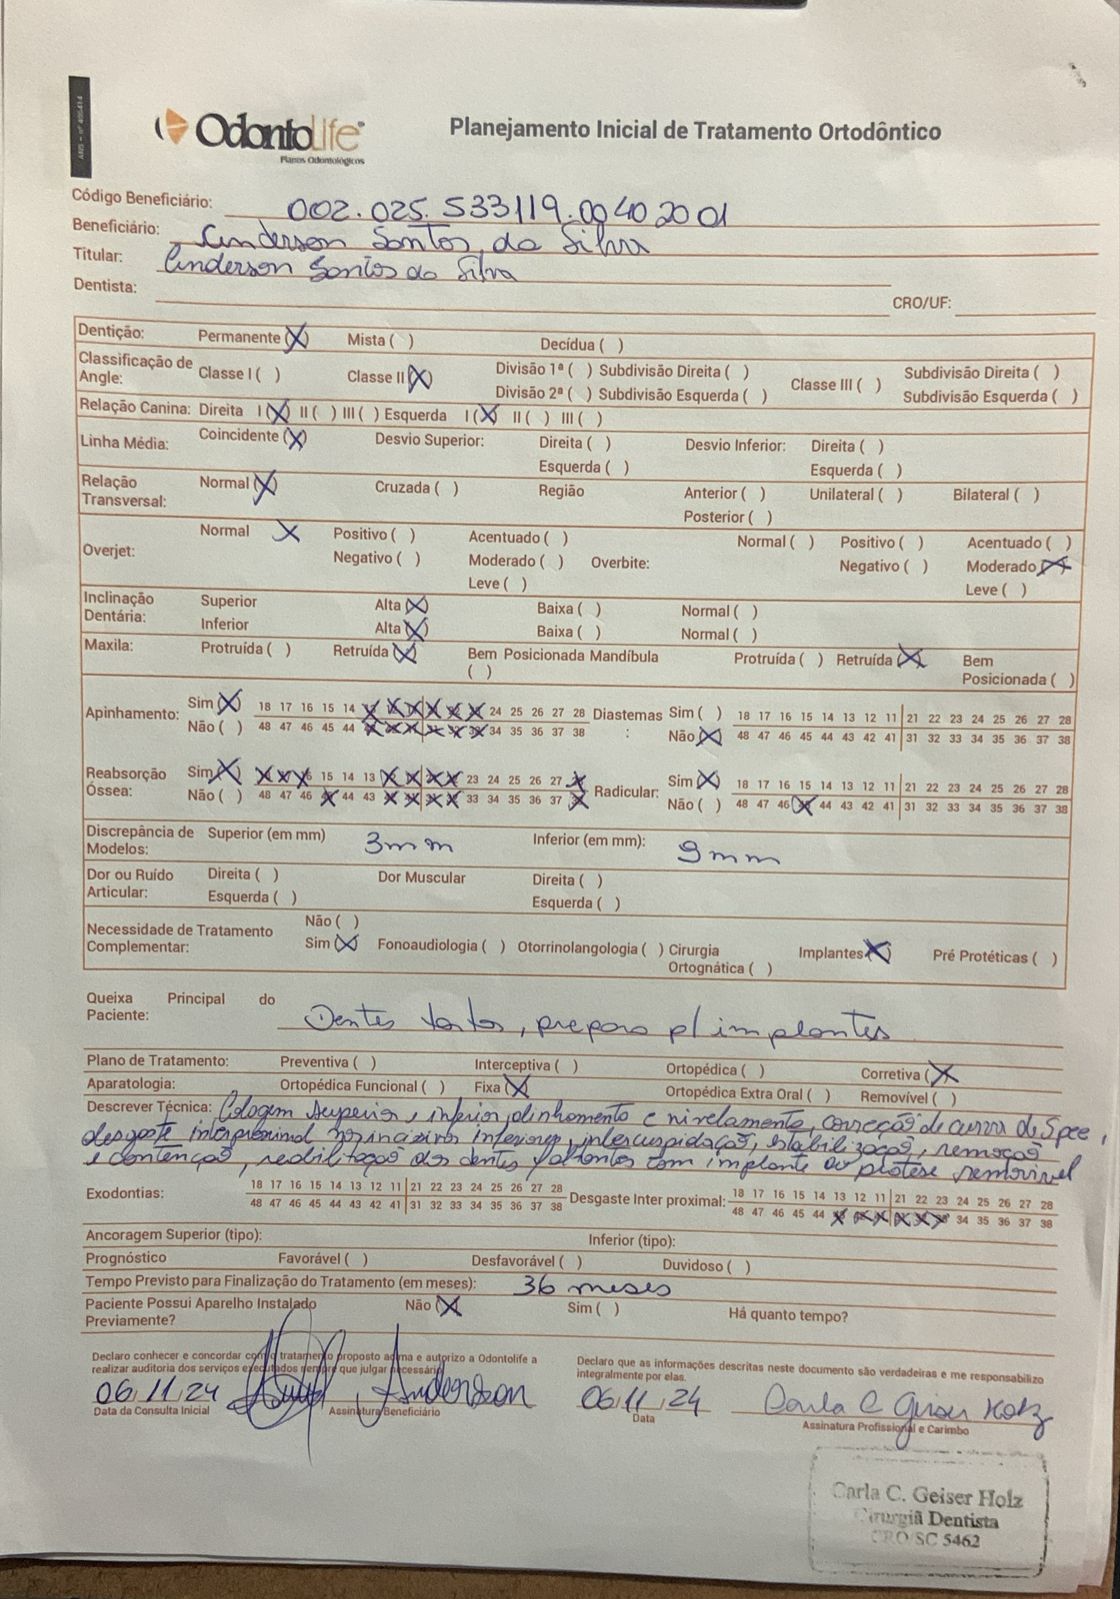 ANS - nº 406414
OdontoLife
Planos Odontológicos
Planejamento Inicial de Tratamento Ortodôntico
Código Beneficiário: 002.025.533119.00402001
Beneficiário: Anderson Santos da Silva
Titular: Anderson Santos da Silva
Dentista: CRO/UF:
Dentição: Permanente (X) Mista ( ) Decídua ( )
Classificação de Angle: Classe I ( ) Classe II (X) Divisão 1ª ( ) Subdivisão Direita ( ) Classe III ( ) Subdivisão Direita ( )
Divisão 2ª ( ) Subdivisão Esquerda ( ) Subdivisão Esquerda ( )
Relação Canina: Direita I (X) II ( ) III ( ) Esquerda I (X) II ( ) III ( )
Linha Média: Coincidente (X) Desvio Superior: Direita ( ) Desvio Inferior: Direita ( )
Esquerda ( ) Esquerda ( )
Relação Transversal: Normal (X) Cruzada ( ) Região Anterior ( ) Unilateral ( ) Bilateral ( )
Posterior ( )
Overjet: Normal X Positivo ( ) Acentuado ( ) Normal ( ) Positivo ( ) Acentuado ( )
Negativo ( ) Moderado ( ) Overbite: Negativo ( ) Moderado (X)
Leve ( ) Leve ( )
Inclinação Dentária: Superior Alta (X) Baixa ( ) Normal ( )
Inferior Alta (X) Baixa ( ) Normal ( )
Maxila: Protruída ( ) Retruída (X) Bem Posicionada Mandíbula ( ) Protruída ( ) Retruída (X) Bem Posicionada ( )
Apinhamento: Sim (X) 18 17 16 15 14 X X X X X X 24 25 26 27 28 Diastemas: Sim ( ) 18 17 16 15 14 13 12 11 21 22 23 24 25 26 27 28
Não ( ) 48 47 46 45 44 X X X X X X 34 35 36 37 38 Não (X) 48 47 46 45 44 43 42 41 31 32 33 34 35 36 37 38
Reabsorção Óssea: Sim (X) X X X 15 14 13 X X X X 23 24 25 26 27 X Radicular: Sim (X) 18 17 16 15 14 13 12 11 21 22 23 24 25 26 27 28
Não ( ) 48 47 46 X 44 43 X X X X 33 34 35 36 37 X Não ( ) 48 47 46 X 44 43 42 41 31 32 33 34 35 36 37 38
Discrepância de Modelos: Superior (em mm) 3mm Inferior (em mm): 9mm
Dor ou Ruído Articular: Direita ( ) Dor Muscular Direita ( )
Esquerda ( ) Esquerda ( )
Necessidade de Tratamento Complementar: Não ( )
Sim (X) Fonoaudiologia ( ) Otorrinolangologia ( ) Cirurgia Ortognática ( ) Implantes (X) Pré Protéticas ( )
Queixa Principal do Paciente: Dentes tortos, preparo p/ implantes
Plano de Tratamento: Preventiva ( ) Interceptiva ( ) Ortopédica ( ) Corretiva (X)
Aparatologia: Ortopédica Funcional ( ) Fixa (X) Ortopédica Extra Oral ( ) Removível ( )
Descrever Técnica: Colagem superior, inferior, alinhamento e nivelamento, correção de curva de Spee,
desgaste interproximal nos incisivos inferiores, intercuspidação, estabilização, remoção
e contenção, reabilitação dos dentes faltantes com implante ou prótese removível
Exodontias: 18 17 16 15 14 13 12 11 21 22 23 24 25 26 27 28 Desgaste Inter proximal: 18 17 16 15 14 13 12 11 21 22 23 24 25 26 27 28
48 47 46 45 44 43 42 41 31 32 33 34 35 36 37 38 48 47 46 45 44 X X X X X X 34 35 36 37 38
Ancoragem Superior (tipo): Inferior (tipo):
Prognóstico Favorável ( ) Desfavorável ( ) Duvidoso ( )
Tempo Previsto para Finalização do Tratamento (em meses): 36 meses
Paciente Possui Aparelho Instalado Previamente? Não (X) Sim ( ) Há quanto tempo?
Declaro conhecer e concordar com o tratamento proposto acima e autorizo a Odontolife a
realizar auditoria dos serviços executados sempre que julgar necessário.
Declaro que as informações descritas neste documento são verdadeiras e me responsabilizo
integralmente por elas.
06/11/24 Anderson
Data da Consulta Inicial Assinatura Beneficiário
06/11/24 Carla C Geiser Holz
Data Assinatura Profissional e Carimbo
Carla C. Geiser Holz
Cirurgiã Dentista
CRO/SC 5462